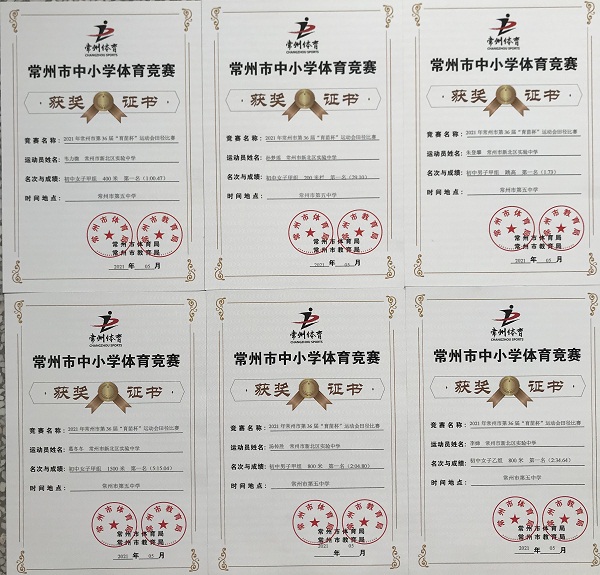 常州体育
CHANGZHOU SPORTS
常州市中小学体育竞赛
·获奖 证书·
竞赛名称：2021年常州市第36届“育苗杯”运动会田径比赛
运动员姓名：韦力薇 常州市新北区实验中学
名次与成绩：初中女子甲组 400米 第一名（1:00.47）
时间地点：常州市第五中学
常州市体育局
常州市教育局
2021 年 05 月
常州体育
CHANGZHOU SPORTS
常州市中小学体育竞赛
·获奖 证书·
竞赛名称：2021年常州市第36届“育苗杯”运动会田径比赛
运动员姓名：常州市新北区实验中学
名次与成绩：初中女子甲组 200米栏 第一名
时间地点：常州市第五中学
常州市体育局
常州市教育局
2021 年 05 月
常州体育
CHANGZHOU SPORTS
常州市中小学体育竞赛
·获奖 证书·
竞赛名称：2021年常州市第36届“育苗杯”运动会田径比赛
运动员姓名：常州市新北区实验中学
名次与成绩：初中男子甲组 跳高 第一名（1.73）
时间地点：常州市第五中学
常州市体育局
常州市教育局
2021 年 05 月
常州体育
CHANGZHOU SPORTS
常州市中小学体育竞赛
·获奖 证书·
竞赛名称：2021年常州市第36届“育苗杯”运动会田径比赛
运动员姓名：葛冬冬 常州市新北区实验中学
名次与成绩：初中女子甲组 1500米 第一名（5:15.04）
时间地点：常州市第五中学
常州市体育局
常州市教育局
2021 年 05 月
常州体育
CHANGZHOU SPORTS
常州市中小学体育竞赛
·获奖 证书·
竞赛名称：2021年常州市第36届“育苗杯”运动会田径比赛
运动员姓名：常州市新北区实验中学
名次与成绩：初中男子甲组 800米 第一名（2:04.80）
时间地点：常州市第五中学
常州市体育局
常州市教育局
2021 年 05 月
常州体育
CHANGZHOU SPORTS
常州市中小学体育竞赛
·获奖 证书·
竞赛名称：2021年常州市第36届“育苗杯”运动会田径比赛
运动员姓名：常州市新北区实验中学
名次与成绩：初中女子乙组 800米 第一名（2:34.64）
时间地点：常州市第五中学
常州市体育局
常州市教育局
2021 年 05 月